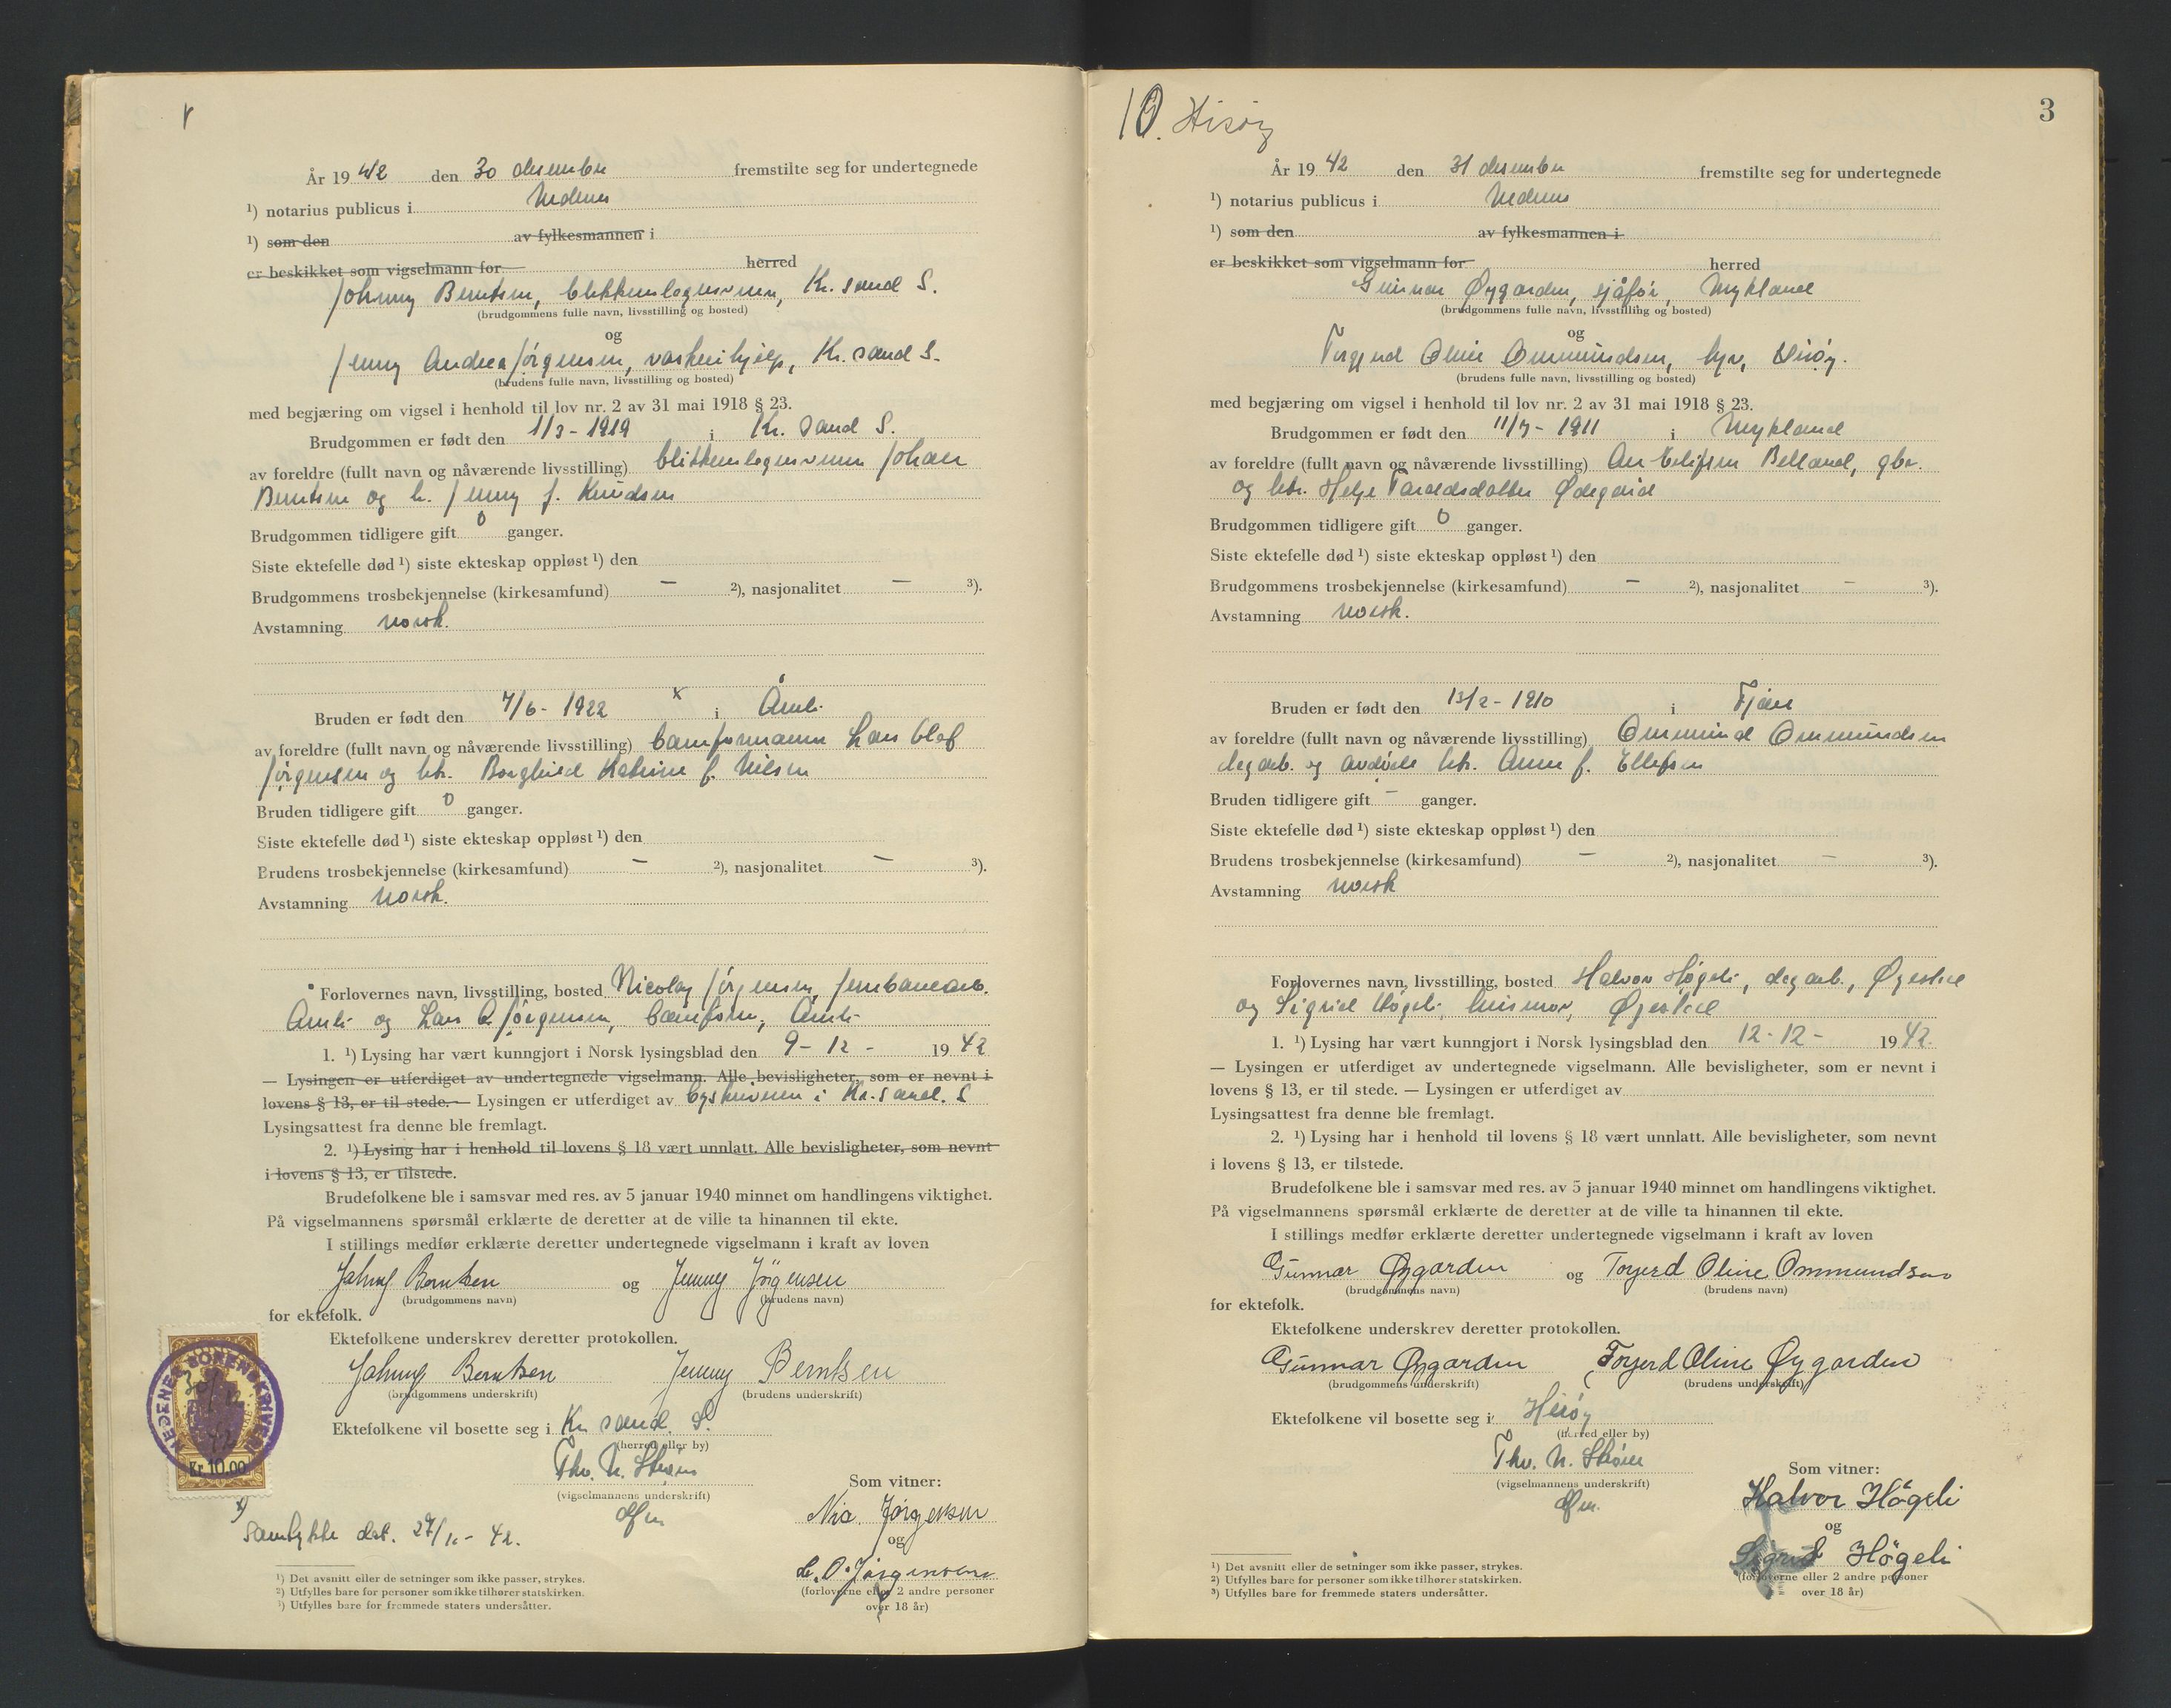 År 1942 den 30 desember fremstilte seg for undertegnede
¹) notarius publicus i Nedenes
¹) som den av fylkesmannen i
er beskikket som vigselmann for herred
Johnny Berntsen, blikkenslagersvenn, Kr.sand S.
(brudgommens fulle navn, livsstilling og bosted)
og
Jenny Andrea Jörgensen, vaskerihjelp, Kr.sand S.
(brudens fulle navn, livsstilling og bosted)
med begjæring om vigsel i henhold til lov nr. 2 av 31 mai 1918 § 23.
Brudgommen er født den 1/3 - 1919 i Kr. sand S.
av foreldre (fullt navn og nåværende livsstilling) blikkenslagersvenn Johan
Berntsen og h. Jenny f. Knudsen
Brudgommen tidligere gift 0 ganger.
Siste ektefelle død ¹) siste ekteskap oppløst ¹) den
Brudgommens trosbekjennelse (kirkesamfund) — ²), nasjonalitet — ³).
Avstamning norsk.
Bruden er født den 7/6 - 1922 x i Åmli
av foreldre (fullt navn og nåværende livsstilling) baneformann Lars Olaf
Jörgensen og htr. Borghild Katrine f. Nilsen
Bruden tidligere gift 0 ganger.
Siste ektefelle død ¹) siste ekteskap oppløst ¹) den
Brudens trosbekjennelse (kirkesamfund) — ²), nasjonalitet — ³).
Avstamning norsk.
Forlovernes navn, livsstilling, bosted Nicolay Jörgensen, jernbanearb.
Åmli og Lars O Jörgensen, baneform, Åmli
1. ¹) Lysing har vært kunngjort i Norsk lysingsblad den 9 - 12 - 1942
— Lysingen er utferdiget av undertegnede vigselmann. Alle bevisligheter, som er nevnt i
lovens § 13, er til stede. — Lysingen er utferdiget av byskriveren i Kr.sand. S
Lysingsattest fra denne ble fremlagt.
2. ¹) Lysing har i henhold til lovens § 18 vært unnlatt. Alle bevisligheter, som nevnt
i lovens § 13, er tilstede.
Brudefolkene ble i samsvar med res. av 5 januar 1940 minnet om handlingens viktighet.
På vigselmannens spørsmål erklærte de deretter at de ville ta hinannen til ekte.
I stillings medfør erklærte deretter undertegnede vigselmann i kraft av loven
Johnny Berntsen og Jenny Jörgensen
(brudgommens navn) (brudens navn)
for ektefolk.
Ektefolkene underskrev deretter protokollen.
Johnny Berntsen Jenny Berntsen
(brudgommens underskrift) (brudens underskrift)
Ektefolkene vil bosette seg i Kr.sand. S.
(herred eller by)
Thv. N. Strøm
(vigselmannens underskrift)
dfm
Som vitner:
Nic. Jørgensen
og
L. O. Jørgensen
(forloverne eller 2 andre personer
over 18 år)
NEDENES SORENSKRIVERI
30/12 42
Kr 10.00
x) samtykke dat. 27/11 - 42.
¹) Det avsnitt eller de setninger som ikke passer, strykes.
²) Utfylles bare for personer som ikke tilhører statskirken.
³) Utfylles bare for fremmede staters undersåtter.
10. Hisøy
3
År 1942 den 31 desember fremstilte seg for undertegnede
¹) notarius publicus i Nedenes
¹) som den av fylkesmannen i
er beskikket som vigselmann for herred
Gunnar Øygarden, sjåfør, Mykland
(brudgommens fulle navn, livsstilling og bosted)
og
Torgerd Oline Ommundsen, syr, Hisøy.
(brudens fulle navn, livsstilling og bosted)
med begjæring om vigsel i henhold til lov nr. 2 av 31 mai 1918 § 23.
Brudgommen er født den 11/7 - 1911 i Mykland
av foreldre (fullt navn og nåværende livsstilling) Eilifsen Belland, gbr.
og htr. Helge Taraldsdatter Ødegård
Brudgommen tidligere gift 0 ganger.
Siste ektefelle død ¹) siste ekteskap oppløst ¹) den
Brudgommens trosbekjennelse (kirkesamfund) — ²), nasjonalitet — ³).
Avstamning norsk.
Bruden er født den 13/2 - 1910 i Fjære
av foreldre (fullt navn og nåværende livsstilling) Ommund Ommundsen
dagarb. og avdøde htr. Anne f. Ellefsen
Bruden tidligere gift - ganger.
Siste ektefelle død ¹) siste ekteskap oppløst ¹) den
Brudens trosbekjennelse (kirkesamfund) — ²), nasjonalitet — ³).
Avstamning norsk
Forlovernes navn, livsstilling, bosted Halvor Högeli, dagarb., Øyestad
og Sigrid Högeli, husmor, Øyestad
1. ¹) Lysing har vært kunngjort i Norsk lysingsblad den 12 - 12 - 1942.
— Lysingen er utferdiget av undertegnede vigselmann. Alle bevisligheter, som er nevnt i
lovens § 13, er til stede. — Lysingen er utferdiget av
Lysingsattest fra denne ble fremlagt.
2. ¹) Lysing har i henhold til lovens § 18 vært unnlatt. Alle bevisligheter, som nevnt
i lovens § 13, er tilstede.
Brudefolkene ble i samsvar med res. av 5 januar 1940 minnet om handlingens viktighet.
På vigselmannens spørsmål erklærte de deretter at de ville ta hinannen til ekte.
I stillings medfør erklærte deretter undertegnede vigselmann i kraft av loven
Gunnar Øygarden og Torgerd Oline Ommundsen
(brudgommens navn) (brudens navn)
for ektefolk.
Ektefolkene underskrev deretter protokollen.
Gunnar Øygarden Torgerd Oline Øygarden
(brudgommens underskrift) (brudens underskrift)
Ektefolkene vil bosette seg i Hisøy
(herred eller by)
Thv. N. Strøm
(vigselmannens underskrift)
dfm.
Som vitner:
Halvor Högeli
og
Sigrid Högeli
(forloverne eller 2 andre personer
over 18 år)
¹) Det avsnitt eller de setninger som ikke passer, strykes.
²) Utfylles bare for personer som ikke tilhører statskirken.
³) Utfylles bare for fremmede staters undersåtter.